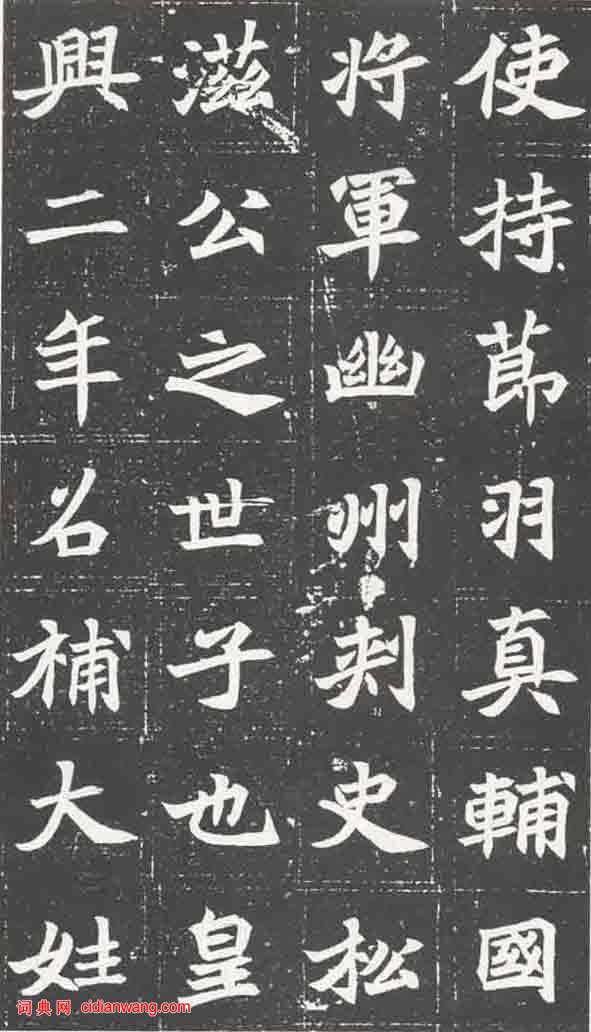 使持節羽真輔國
将軍幽州刺史松
滋公之世子也皇
興二年召補大姓
词典网 cidianwang.com